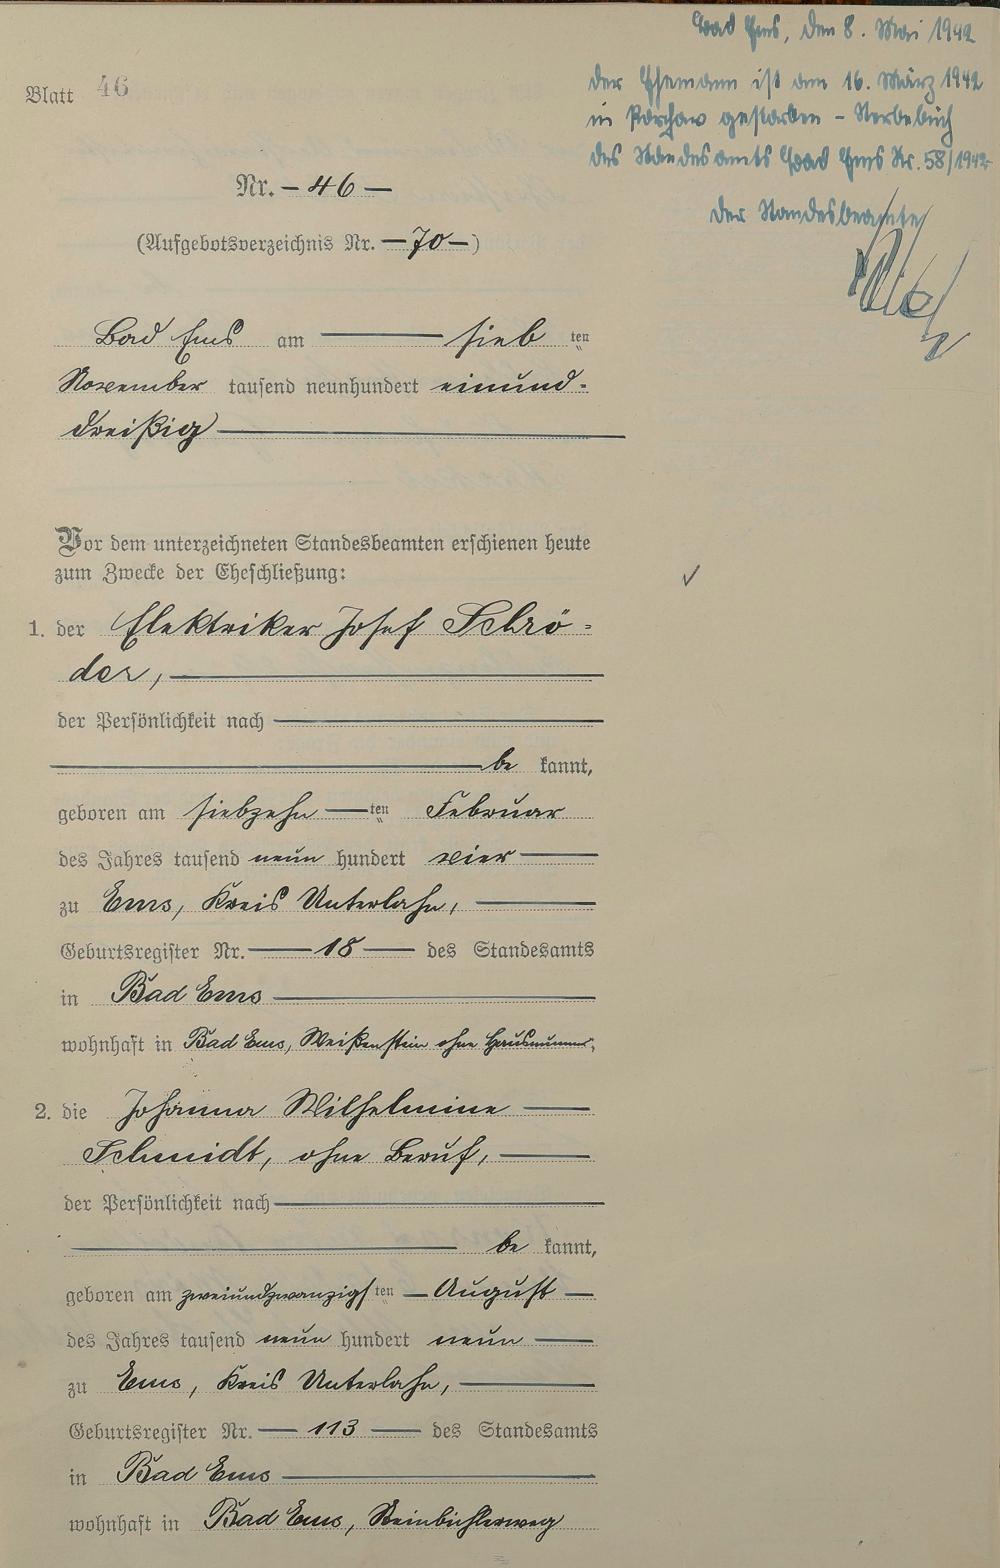 Bad Ems, den 8. Mai 1942
Der Ehemann ist am 16. März 1942
in Parchow gestorben – Sterbebuch
des Standesamts Bad Ems Nr. 58/1942
Der Standesbeamte
Blatt 46
Nr. – 46 –
(Aufgebotsverzeichnis Nr. – 70 – )
Bad Ems am sieb ten
November tausend neunhundert einund-
dreißig
Vor dem unterzeichneten Standesbeamten erschienen heute
zum Zwecke der Eheschließung:
1. der Elektriker Josef Schrö-
der,
der Persönlichkeit nach
be kannt,
geboren am siebzehn ten Februar
des Jahres tausend neun hundert vier
zu Ems, Kreis Unterlahn,
Geburtsregister Nr. 18 des Standesamts
in Bad Ems
wohnhaft in Bad Ems, Weißenstein ohne Hausnummer,
2. die Johanna Wilhelmine
Schmidt, ohne Beruf,
der Persönlichkeit nach
be kannt,
geboren am zweiundzwanzigs ten August
des Jahres tausend neun hundert neun
zu Ems, Kreis Unterlahn,
Geburtsregister Nr. 113 des Standesamts
in Bad Ems
wohnhaft in Bad Ems, Steinbichlerweg